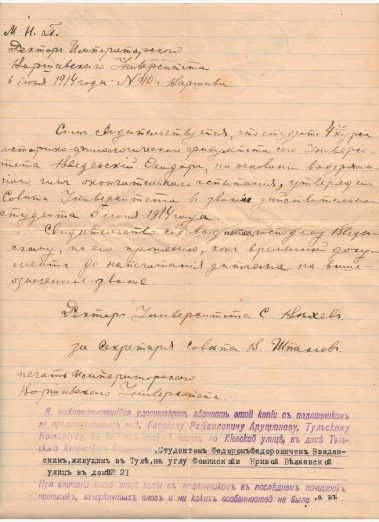 М. Н. П.
Ректоръ Императорскаго
Варшавскаго Университета
6 іюня 1914 года № 710 г. Варшава
Симъ свидетельствуется, что студентъ 4го курса
историко-филологическаго факультета сего Универси-
тета Введенскій Ѳеодоръ, на основаніи выдержан-
наго имъ окончательнаго испытанія, утвержденъ
Совѣтомъ Университета въ званіи дѣйствительнаго
студента 5 іюня 1914 года.
Свидѣтельство сіе выдано господину Введен-
скому, по его прошенію, какъ временный доку-
ментъ до напечатанія диплома на выше-
означенное званіе.
Ректоръ Университета С. Вѣховъ
За Секретаря Совѣта В.
печать Императорскаго
Варшавскаго Университета.
Я, нижеподписавшійся удостовѣряю, вѣрность этой копіи съ подлинникомъ
ея представленнымъ мнѣ, Гавріилу Рафаиловичу Арутюнову, Тульскому
Нотаріусу, въ 1 части, по Кіевской улицѣ, въ домѣ Туль-
скаго Студентомъ Ѳедоромъ Ѳедоровичемъ Введен-
скимъ, живущимъ въ Тулѣ, на углу Фоминской и Кривой
улицъ въ домѣ № 21
При сличеніи мною этой копіи съ подлинникомъ въ послѣднемъ почистокъ,
приписокъ, зачеркнутыхъ словъ и ни какихъ особенностей не было а въ